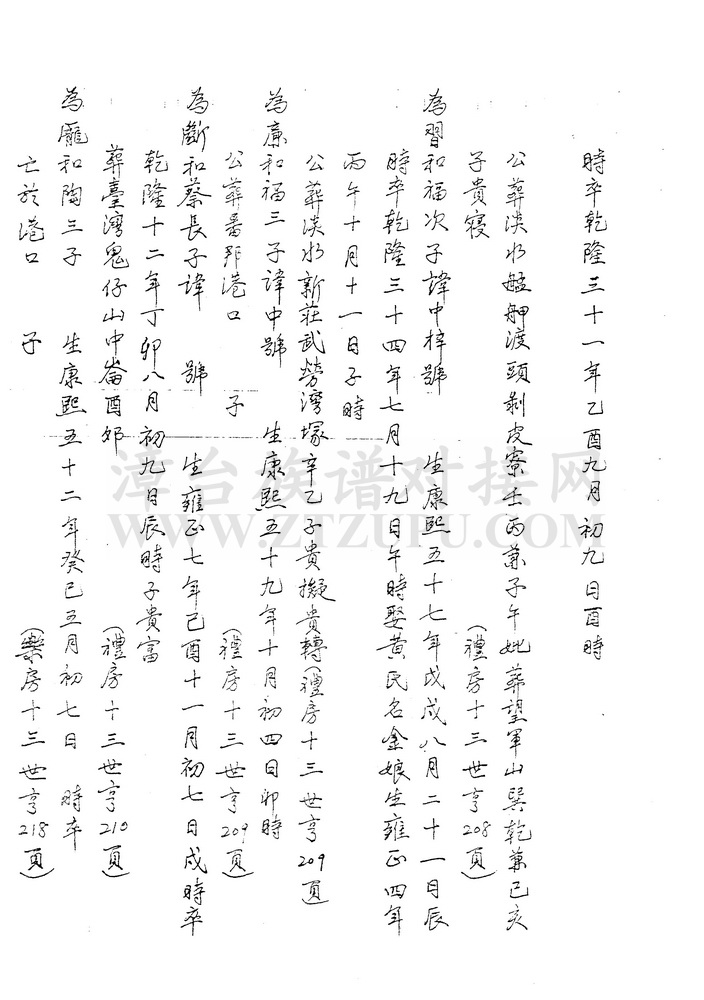 時卒乾隆三十一年乙酉九月初九日酉時
公葬淡水艋舺渡頭剝皮寮壬丙兼子午妣葬望軍山巽乾兼巳亥
子貴寢 (禮房十三世亨208頁)
為習和福次子諱中梓號 生康熙五十七年戊戌八月二十一日辰
時卒乾隆三十四年七月十九日午時娶黃氏名金娘生雍正四年
丙午十月十一日子時
公葬淡水新莊武勞灣塚辛乙子貴擬貴轉(禮房十三世亨209頁)
為廉和福三子諱中號 生康熙五十九年十月初四日卯時
公葬番邦港口 子 (禮房十三世亨209頁)
為斷和蔡長子諱 號 生雍正七年己酉十一月初七日戌時卒
乾隆十二年丁卯八月初九日辰時子貴富
葬臺灣鬼仔山中崙酉邜 (禮房十三世亨210頁)
為龐和陶三子 生康熙五十二年癸巳五月初七日 時卒
亡於港口 子 (樂房十三世亨218頁)
漳台族谱对接网
WWW.ZTZUPU.COM